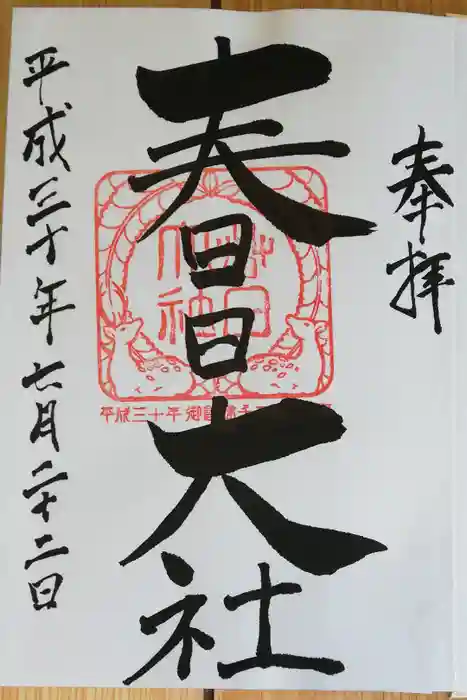 奉拝
春日大社
平成三十年七月二十二日
平成三十年